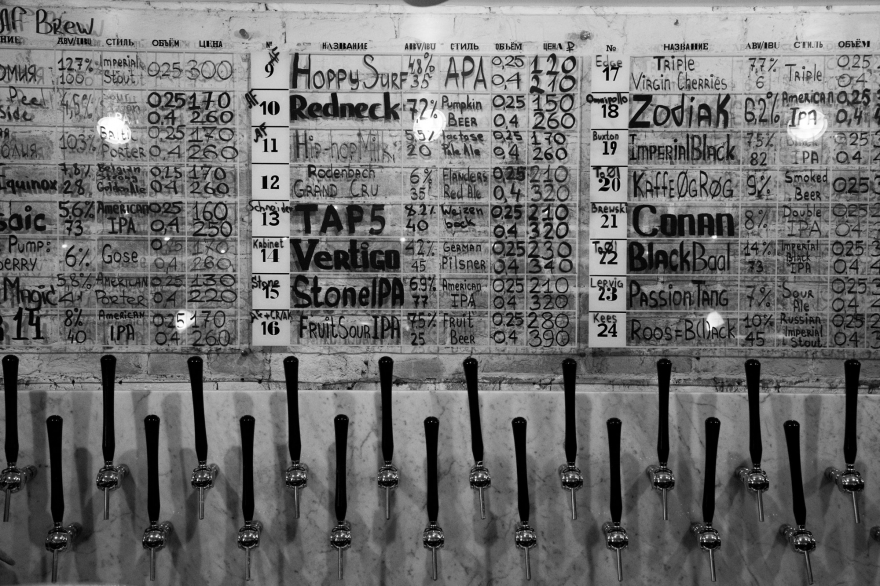 AF Brew
НИЕ ABV/IBU СТИЛЬ ОБЪЁМ ЦЕНА
ОМИЯ 12,7% Imperial 0,25 300
100 Stout
Peel 4,5% 0,25 170
Side 0,4 260
10,3% Baltic 0,25 170
Porter 0,4 260
Equinox 7,8% Belgian 0,15 170
28 Golden Ale 0,4 260
saic 5,6% American 0,25 160
73 IPA 0,4 250
Pump: 6% Gose 0,25 170
berry 0,4 260
Magic 5,8% American 0,25 130
Porter 0,4 220
14 8% American 0,25 170
40 IPA 0,4 260
№ НАЗВАНИЕ ABV/IBU СТИЛЬ ОБЪЁМ ЦЕНА ₽
9 Hoppy Surf 4,8% APA 0,25 120
35 0,4 210
AF 10 Redneck 7,2% Pumpkin 0,25 150
Beer 0,4 260
AF 11 Hip-hop Milk 5,5% Lactose 0,25 170
20 Pale Ale 0,4 260
12 Rodenbach 6% Flanders 0,25 210
Grand Cru 35 Red Ale 0,4 320
Schneider 13 TAP5 8.2% Weizen 0,25 210
40 bock 0,4 320
Kabinet 14 Vertigo 4,2% German 0,25 230
45 Pilsner 0,4 340
Stone 15 Stone IPA 6.9% American 0,25 210
77 IPA 0,4 320
16 Fruit Sour IPA 7,5% Fruit 0,25 280
25 Beer 0,4 390
№ НАЗВАНИЕ ABV/IBU СТИЛЬ ОБЪЁМ
Edge 17 Triple 7,7% Triple 0,25
Virgin Cherries 6 0,4
Omnipollo 18 Zodiak 6.2% American 0,25
IPA 0,4
Buxton 19 Imperial Black 7,5% Black 0,25
82 IPA 0,4
TO Øl 20 KaffeØgRøg 9% Smoked 0,25
Beer
Brewski 21 Conan 8% Double 0,25
IPA 0,4
TO Øl 22 BlackBaal 14% Imperial 0,25
73 Black IPA 0,4
Lervig 23 Passion Tang 7% Sour 0,25
Ale 0,4
Kees 24 Roos=B(l)ack 10% Russian 0,25
45 Imperial Stout 0,4